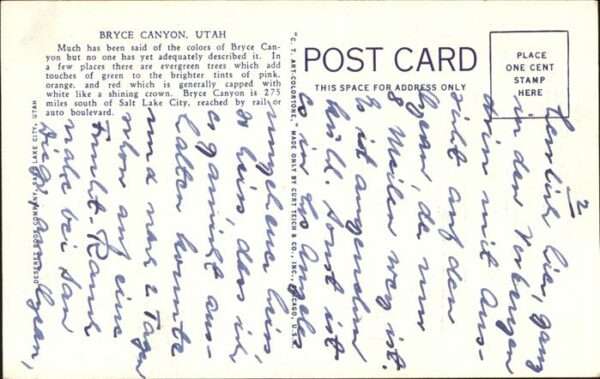 BRYCE CANYON, UTAH
Much has been said of the colors of Bryce Can-
yon but no one has yet adequately described it. In
a few places there are evergreen trees which add
touches of green to the brighter tints of pink,
orange, and red which is generally capped with
white like a shining crown. Bryce Canyon is 275
miles south of Salt Lake City, reached by rail or
auto boulevard.
DESERET BOOK COMPANY, SALT LAKE CITY, UTAH
"C. T. ART-COLORTONE," MADE ONLY BY CURT TEICH & CO., INC., CHICAGO, U.S.A.
POST CARD
THIS SPACE FOR ADDRESS ONLY
PLACE
ONE CENT
STAMP
HERE
2
Herrlich hier, ganz
in den Vorbergen
drin mit Aus-
sicht auf den
Ozean, der nur
8 Meilen weg ist.
Es ist angenehm
kühl. Sonst ist
es in Los Angeles
ungeheuer heiss,
so heiss, dass ich
es gar nicht aus-
halten konnte
und nach 2 Tagen
schon auf eine
Frucht-Ranch
nahe bei San
Diego